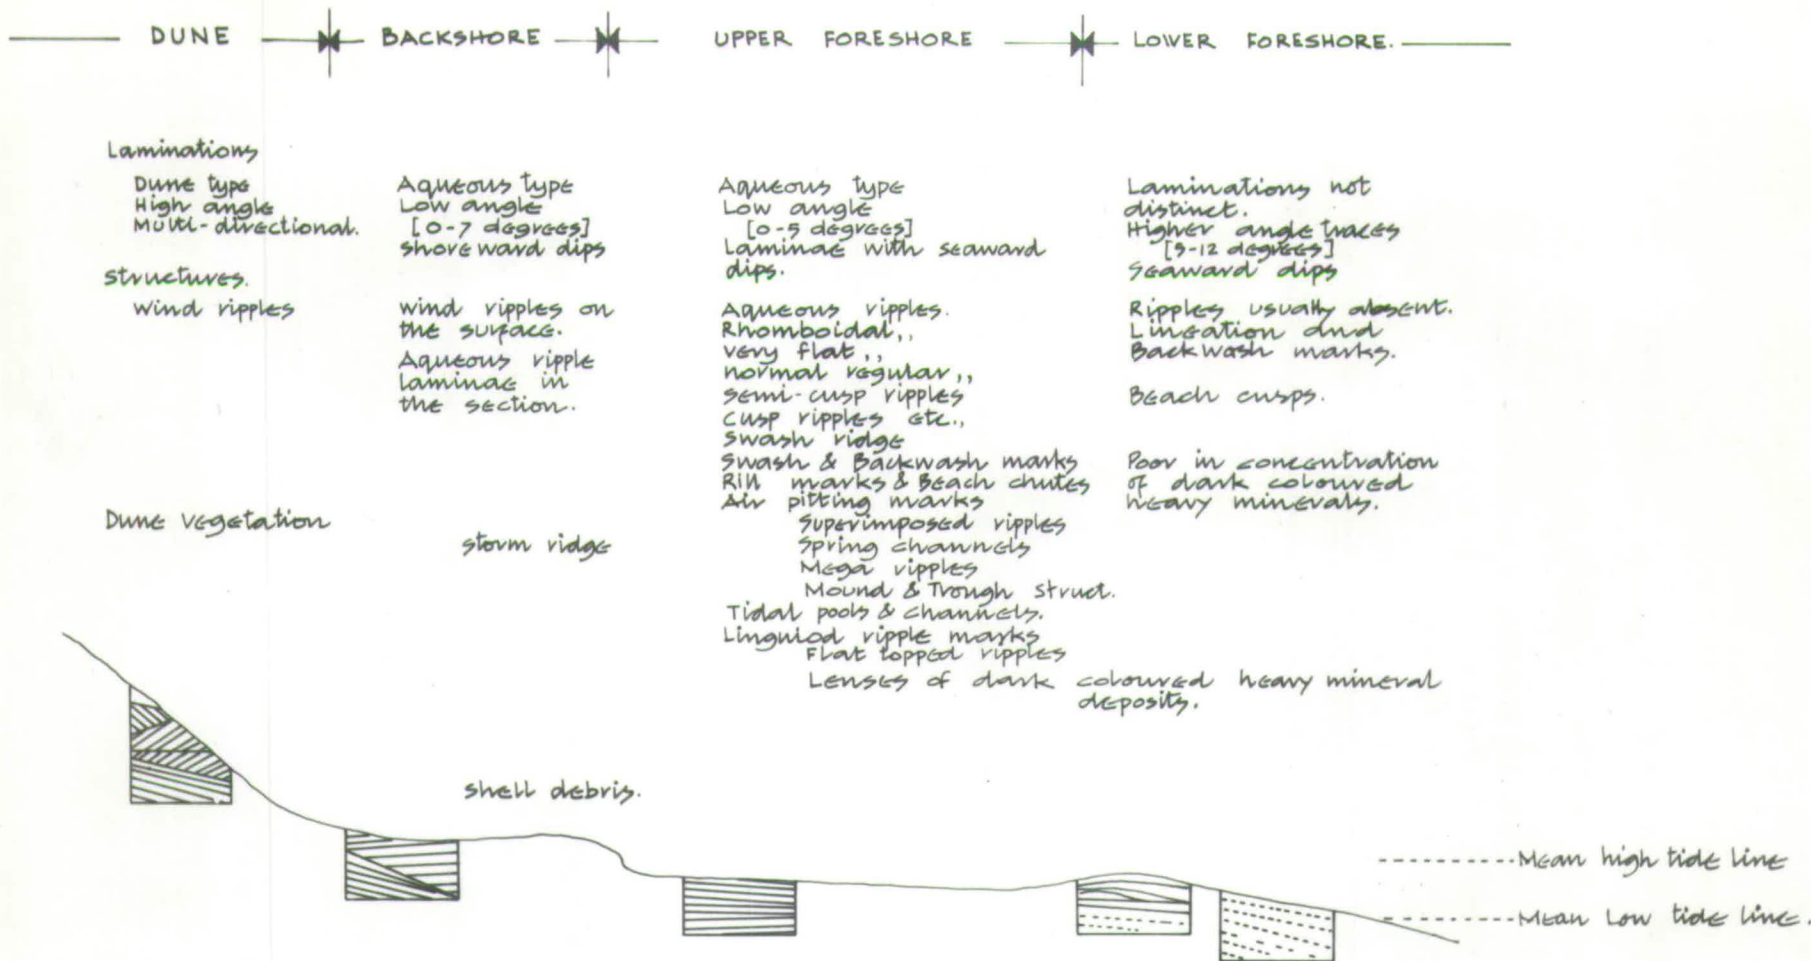 DUNE
BACKSHORE
UPPER FORESHORE
LOWER FORESHORE.
Laminations
Dune type
High angle
Multi-directional.
Structures.
Wind ripples
Dune vegetation
Aqueous type
Low angle
[0-7 degrees]
Shoreward dips
Wind ripples on
the surface.
Aqueous ripple
laminae in
the section.
Storm ridge
Shell debris.
Aqueous type
Low angle
[0-5 degrees]
Laminae with seaward
dips.
Aqueous ripples.
Rhomboidal,,
very flat,,
normal regular,,
Semi-cusp ripples
Cusp ripples etc.,
Swash ridge
Swash & Backwash marks
Rill marks & Beach chutes
Air pitting marks
Superimposed ripples
Spring channels
Mega ripples
Mound & Trough struct.
Tidal pools & channels.
Linguiod ripple marks
Flat topped ripples
Lenses of dark coloured heavy mineral
deposits.
Laminations not
distinct.
Higher angle traces
[5-12 degrees]
Seaward dips
Ripples usually absent.
Lineation and
Backwash marks.
Beach cusps.
Poor in concentration
of dark coloured
heavy minerals.
Mean high tide line
Mean Low tide line.